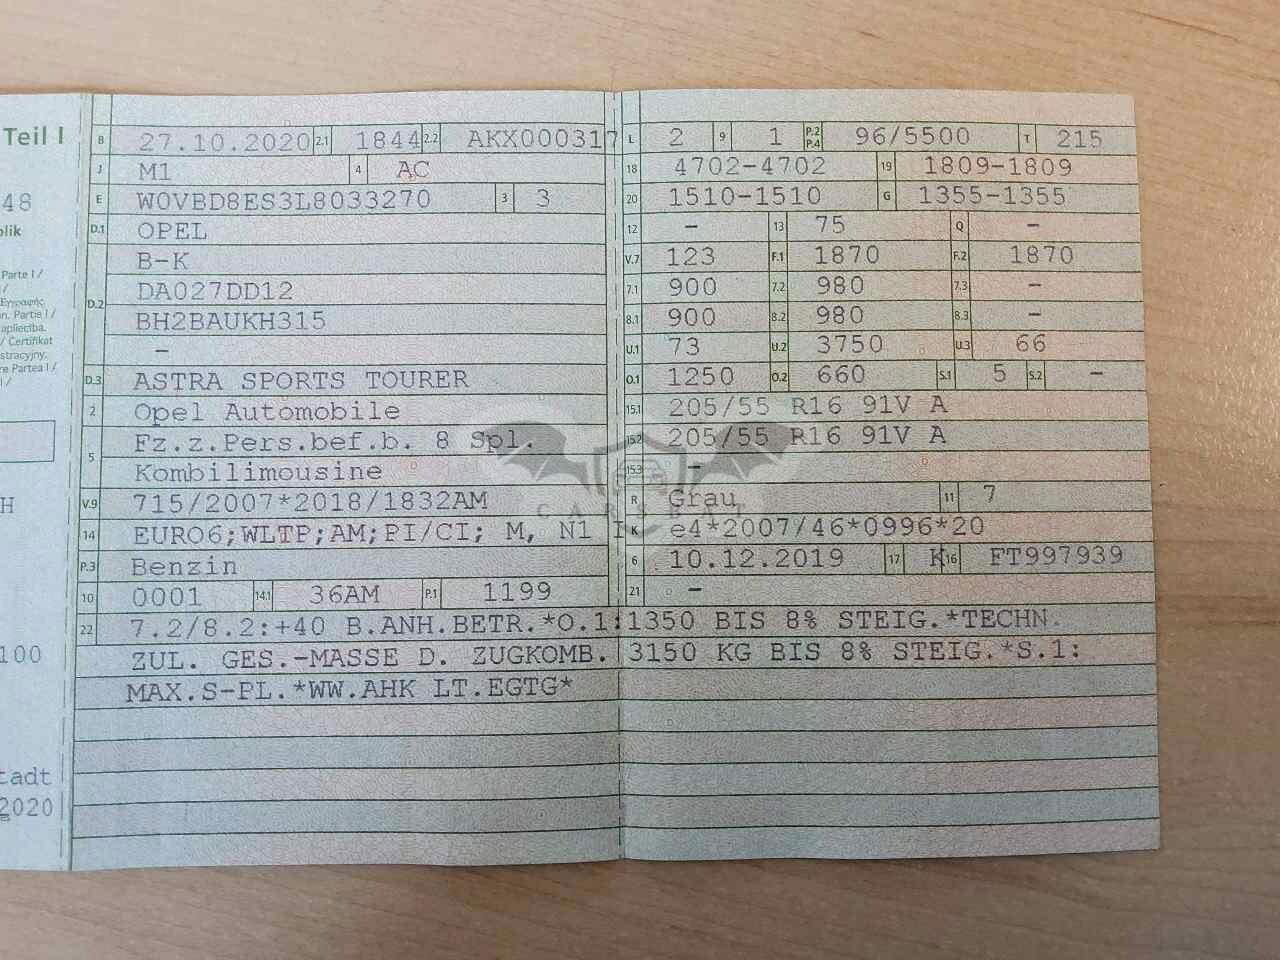 Teil I
48
blik
Parte I /
Εγγραφής
n. Partie I /
apliecība.
/ Certifikat
stracyjny.
re Partea I /
H
100
tadt
2020
B 27.10.2020 2.1 1844 2.2 AKX000317 L 2 9 1 P.2 P.4 96/5500 T 215
J M1 4 AC 18 4702-4702 19 1809-1809
E W0VBD8ES3L8033270 3 3 20 1510-1510 G 1355-1355
D.1 OPEL 12 - 13 75 Q -
D.2 B-K V.7 123 F.1 1870 F.2 1870
DA027DD12 7.1 900 7.2 980 7.3 -
BH2BAUKH315 8.1 900 8.2 980 8.3 -
- U.1 73 U.2 3750 U.3 66
D.3 ASTRA SPORTS TOURER O.1 1250 O.2 660 S.1 5 S.2 -
2 Opel Automobile 15.1 205/55 R16 91V A
5 Fz.z.Pers.bef.b. 8 Spl. 15.2 205/55 R16 91V A
Kombilimousine 15.3 -
V.9 715/2007*2018/1832AM R Grau 11 7
CARSBAT
14 EURO6;WLTP;AM;PI/CI; M, N1 I K e4*2007/46*0996*20
P.3 Benzin 6 10.12.2019 17 K 16 FT997939
10 0001 14.1 36AM P.1 1199 21 -
22 7.2/8.2:+40 B.ANH.BETR.*O.1:1350 BIS 8% STEIG.*TECHN.
ZUL. GES.-MASSE D. ZUGKOMB. 3150 KG BIS 8% STEIG.*S.1:
MAX.S-PL.*WW.AHK LT.EGTG*